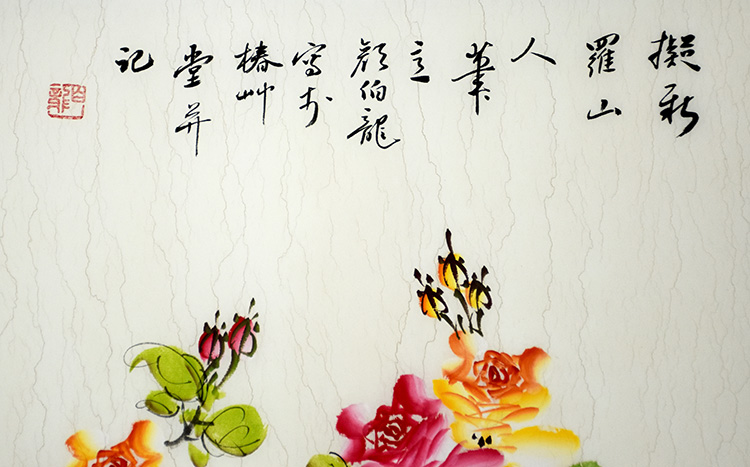 擬新
羅山
人
筆
意
顔伯龍
寫於
椿艸
堂并
記
伯龍